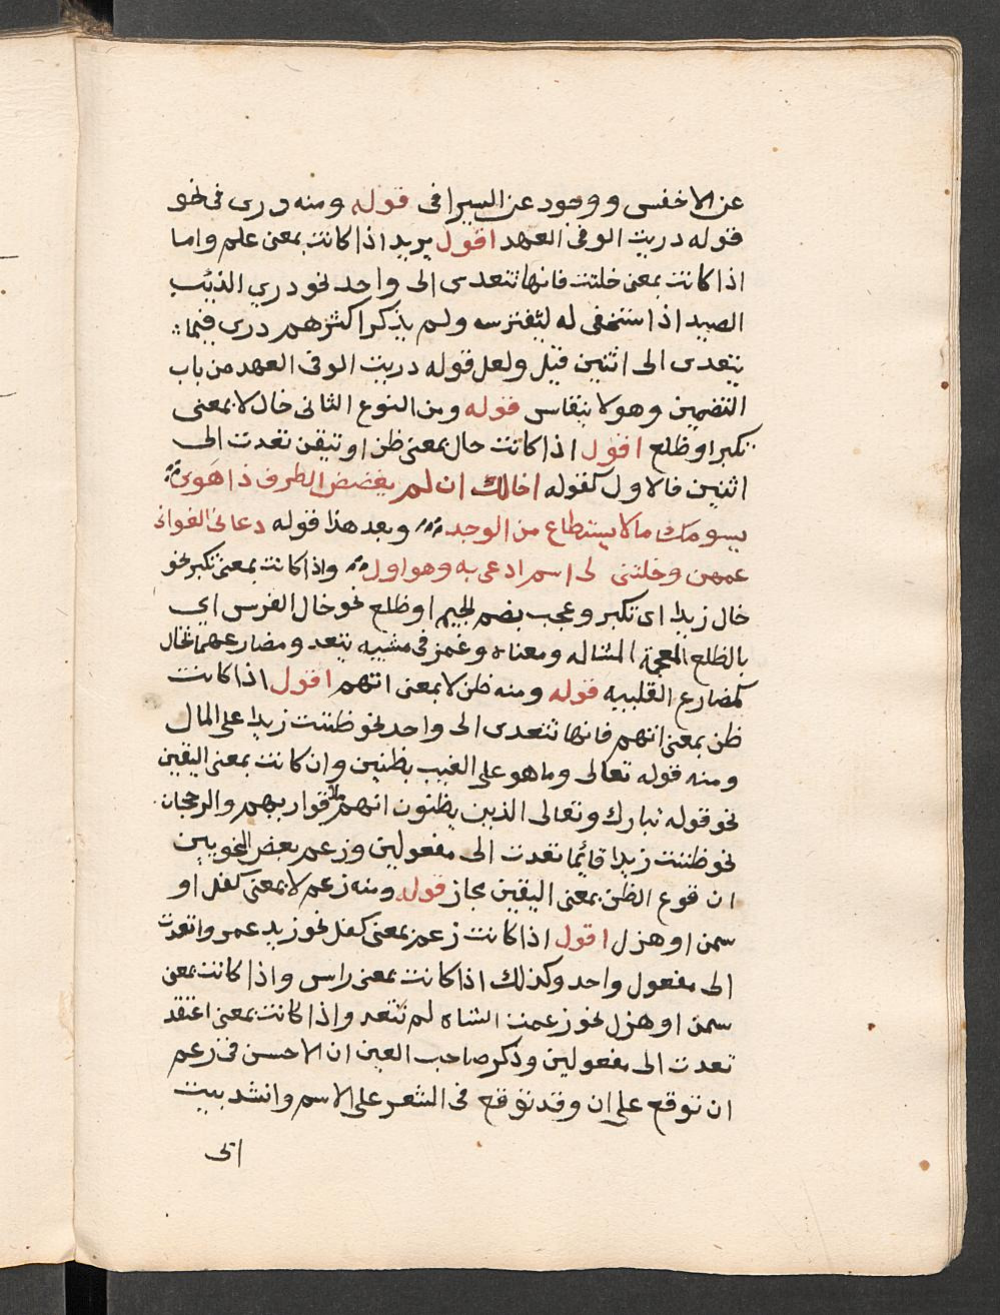 عن الاخفس ووجود عن السيرافى قوله ومنه درى فى نحو
قوله دريت الوفى العهد اقول يريد اذا كانت بمعنى علم واما
اذا كانت بمعنى خلتت فانها تتعدى الى واحد نحو دري الذئب
الصيد اذا ستخفى له ليفترسه ولم يذكر اكثرهم درى فيما
يتعدى الى اثنين قيل ولعل قوله دريت الوفى العهد من باب
التضمين وهو لا ينقاس قوله ومن النوع الثانى خال لا بمعنى
تكبر او ظلع اقول اذا كانت خال بمعنى ظن او تيقن تعدت الى
اثنين فالاول كقوله اخالك ان لم يغضض الطرف ذا هوى
يسومك ما لا يستطاع من الوجد وبعد هذا قوله دعانى الغوانى
عمهن وخلتنى لى اسم ادعى به وهو اول واذا كانت بمعنى تكبر نحو
خال زيدا اى تكبر وعجب بضم الجيم او ظلع نحو خال الفرس اي
بالظلع المعجمة المشاله ومعناه وغمز فى مشيه يتعد ومضارعهما تخال
كمضارع القلبيه قوله ومنه ظن لا بمعنى اتهم اقول اذا كانت
ظن بمعنى اتهم فانها تتعدى الى واحد نحو ظننت زيدا على المال
ومنه قوله تعالى وما هو على الغيب بظنين وان كانت بمعنى اليقين
نحو قوله تبارك وتعالى الذين يظنون انهم ملاقوا ربهم والرجحان
نحو ظننت زيدا قائما تعدت الى مفعولين وزعم بعض النحويين
ان قوع الظن بمعنى اليقين مجاز قوله ومنه زعم لا بمعنى كفل او
سمن او هزل اقول اذا كانت زعم بمعنى كفل نحو زيد عمروا تعدت
الى مفعول واحد وكذلك اذا كانت بمعنى راس واذا كانت بمعنى
سمن او هزل نحو زعمت الشاه لم تتعد واذا كانت بمعنى اعتقد
تعدت الى مفعولين وذكر صاحب العين ان الاحسن فى زعم
ان توقع على ان وقد توقع فى الشعر على الاسم وانشد بيت